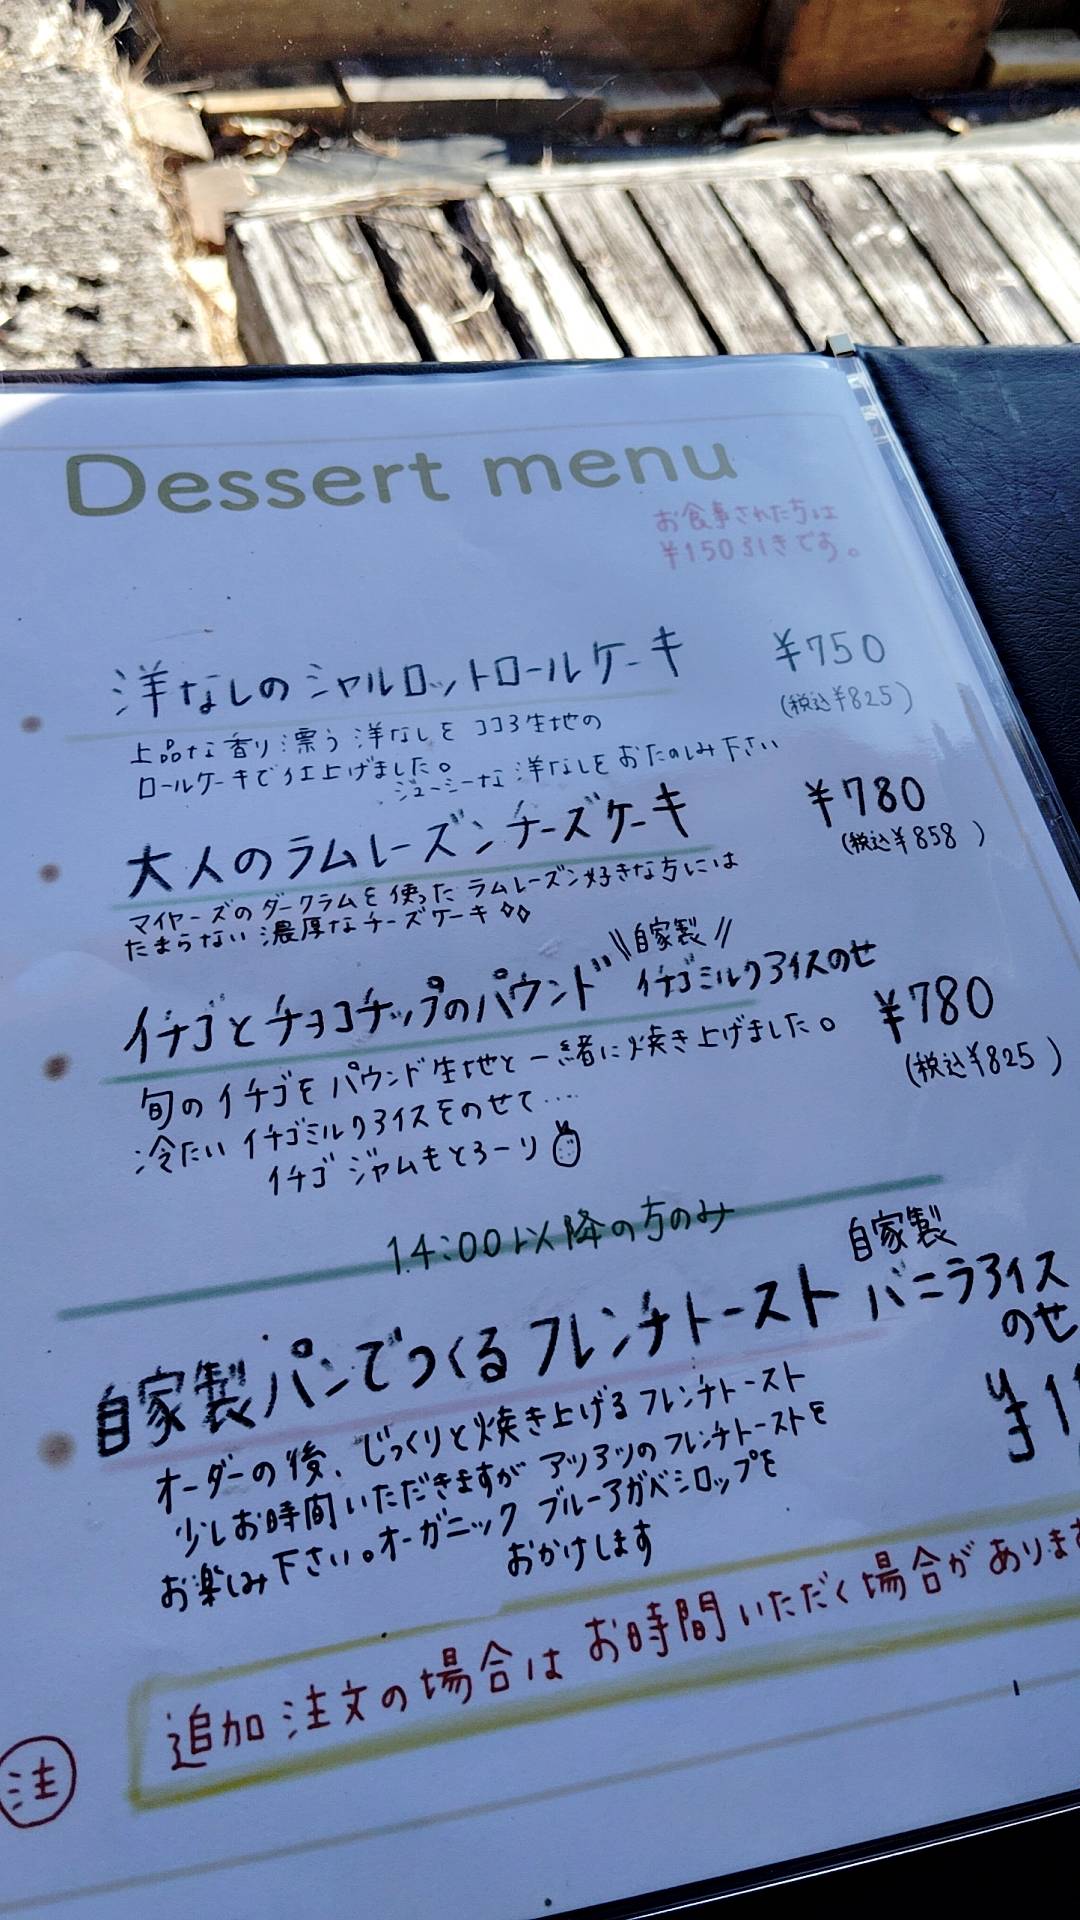 Dessert menu
お食事された方は
¥150引きです。
洋なしのシャルロットロールケーキ ¥750
(税込¥825)
上品な香り漂う洋なしをココア生地の
ロールケーキで仕上げました。
ジューシーな洋なしをおたのしみ下さい
大人のラムレーズンチーズケーキ ¥780
(税込¥858)
マイヤーズのダークラムを使ったラムレーズン好きな方には
たまらない濃厚なチーズケーキ◇◇
\\自家製//
イチゴとチョコチップのパウンド イチゴミルクアイスのせ ¥780
(税込¥825)
旬のイチゴをパウンド生地と一緒に焼き上げました。
冷たいイチゴミルクアイスをのせて....
イチゴジャムもとろーり
14:00以降の方のみ
自家製
自家製パンでつくるフレンチトースト バニラアイス
のせ
オーダーの後、じっくりと焼き上げるフレンチトースト
少しお時間いただきますがアツアツのフレンチトーストを
お楽しみ下さい。オーガニックブルーアガベシロップを
おかけします
注 追加注文の場合はお時間いただく場合があります